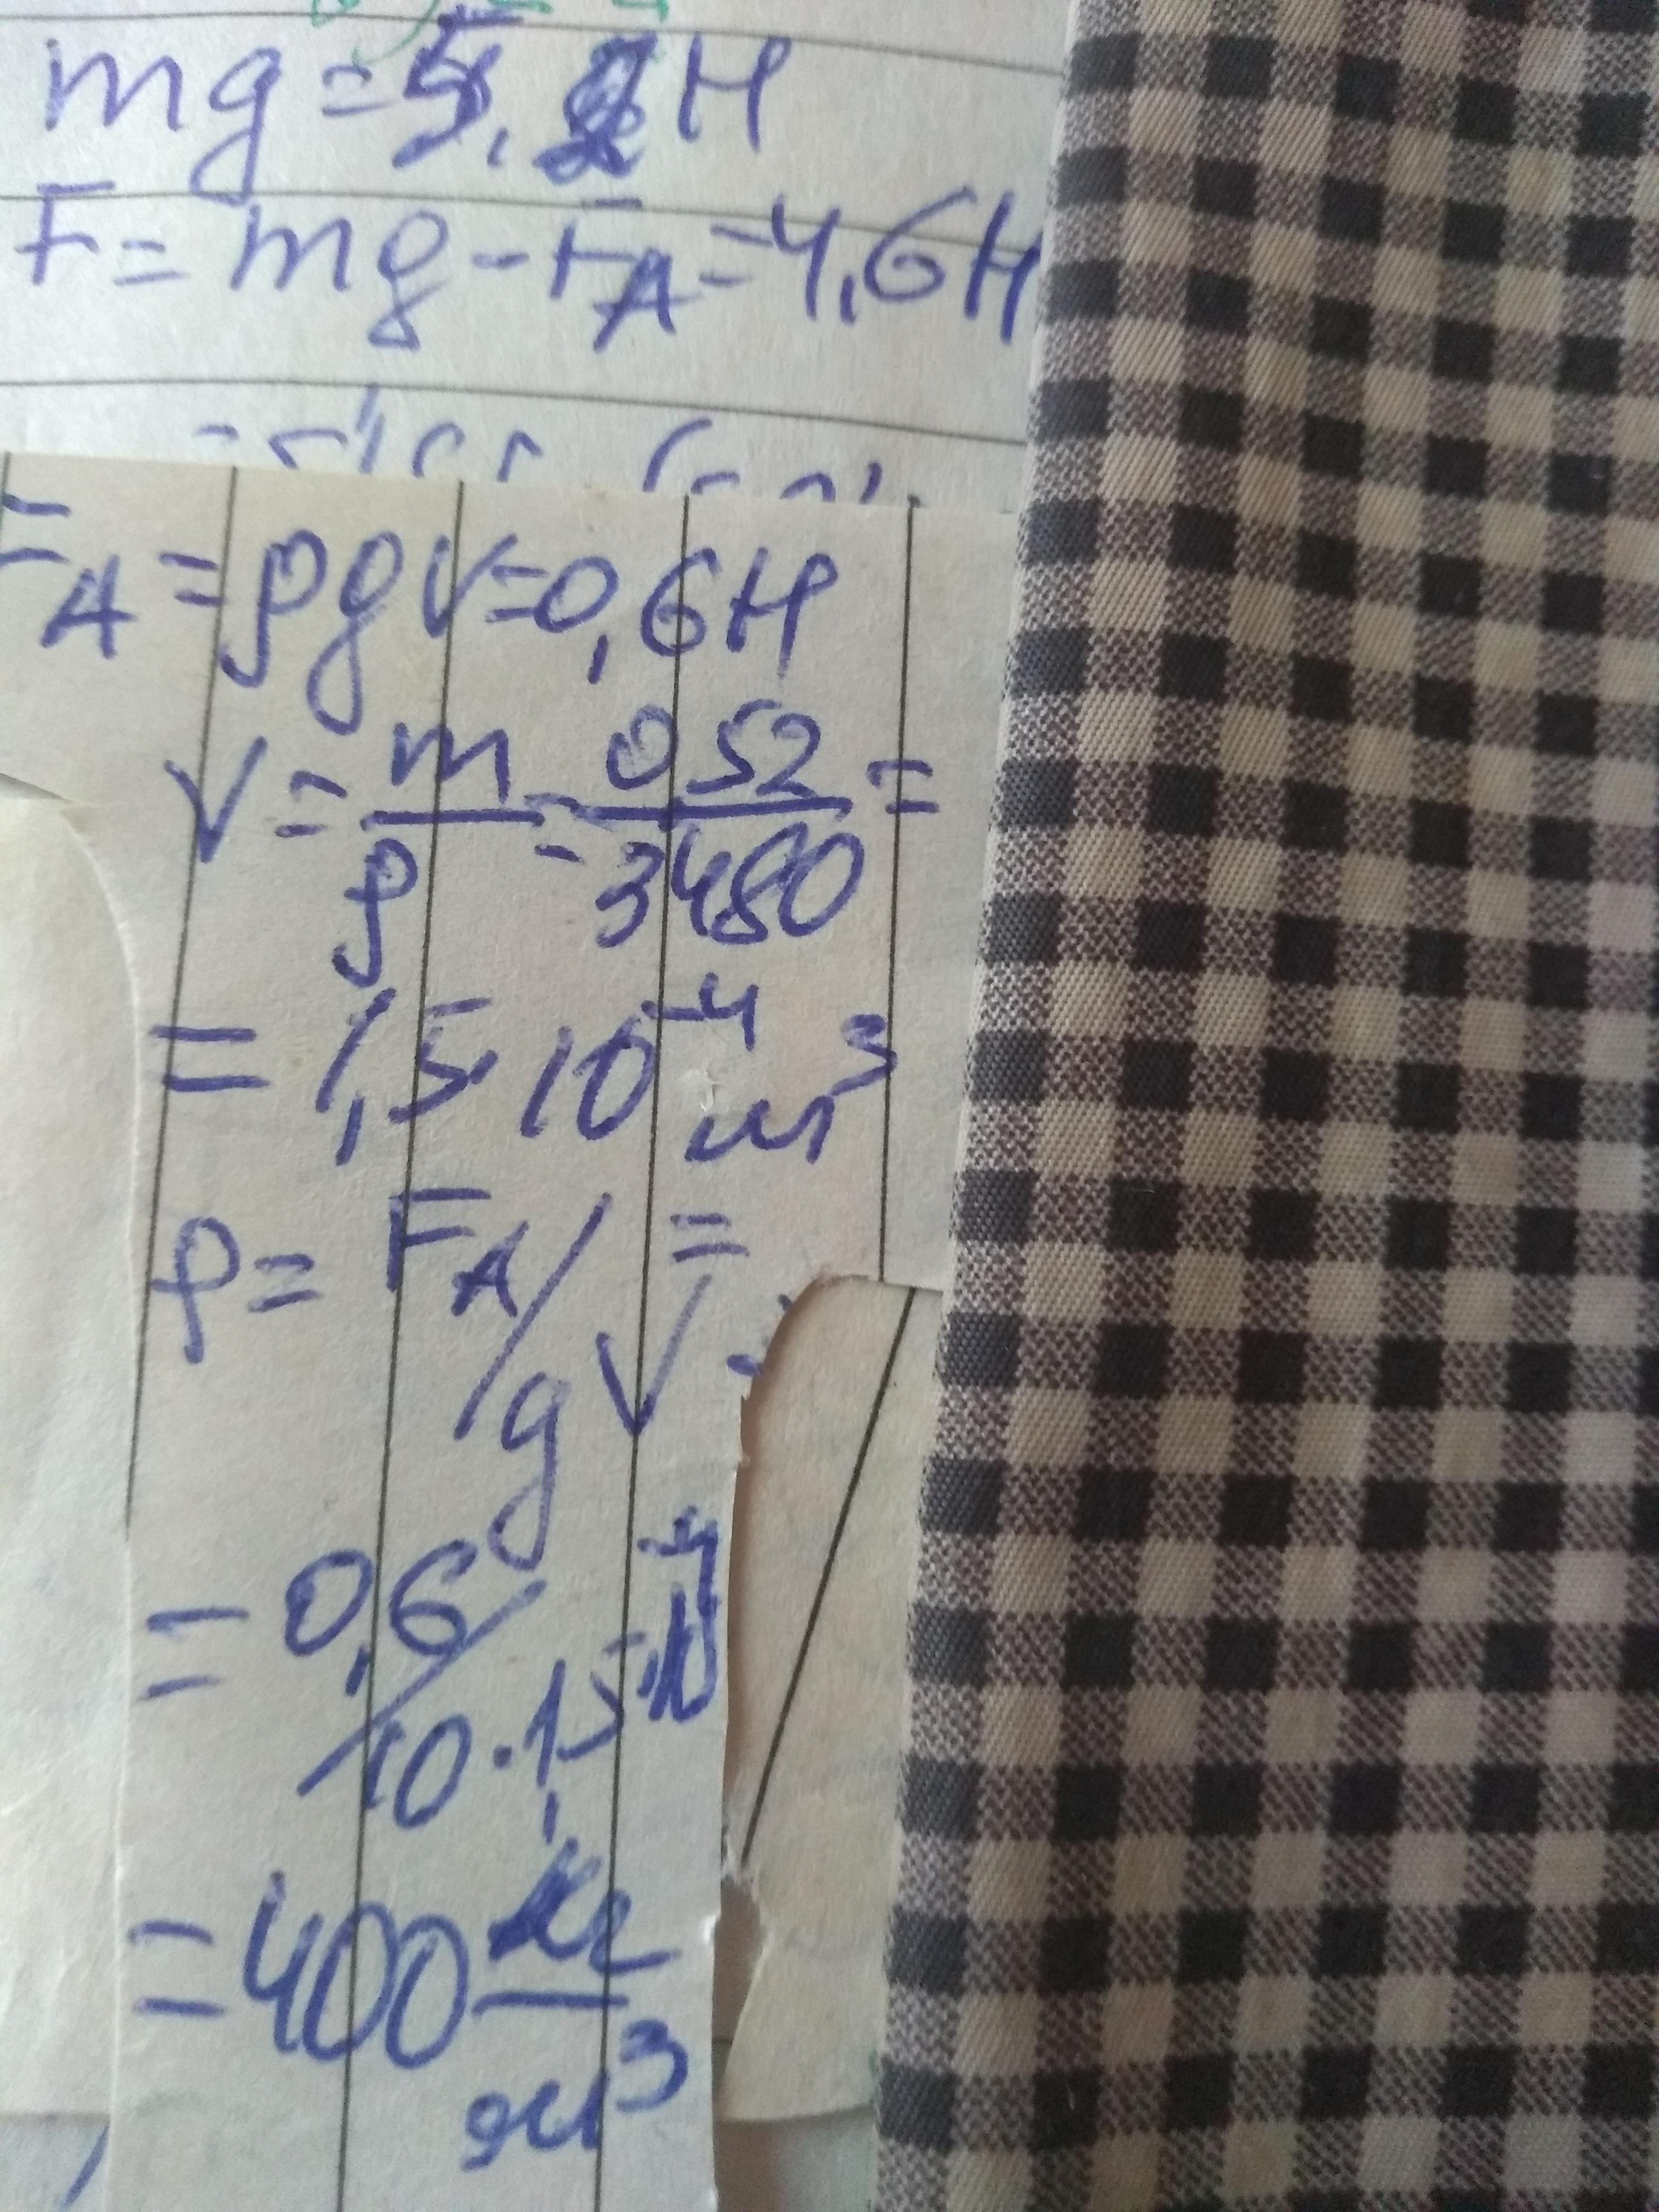 mg = 5,2 H
F = mg - FA = 4,6 H
FA = ρgV = 0,6 H
V = m/ρ = 052/3480 =
= 1,5 · 10⁻⁴ м³
ρ = FA/gV =
= 0,6/10 · 1,5 · 10⁻⁴
= 400 кг/м³